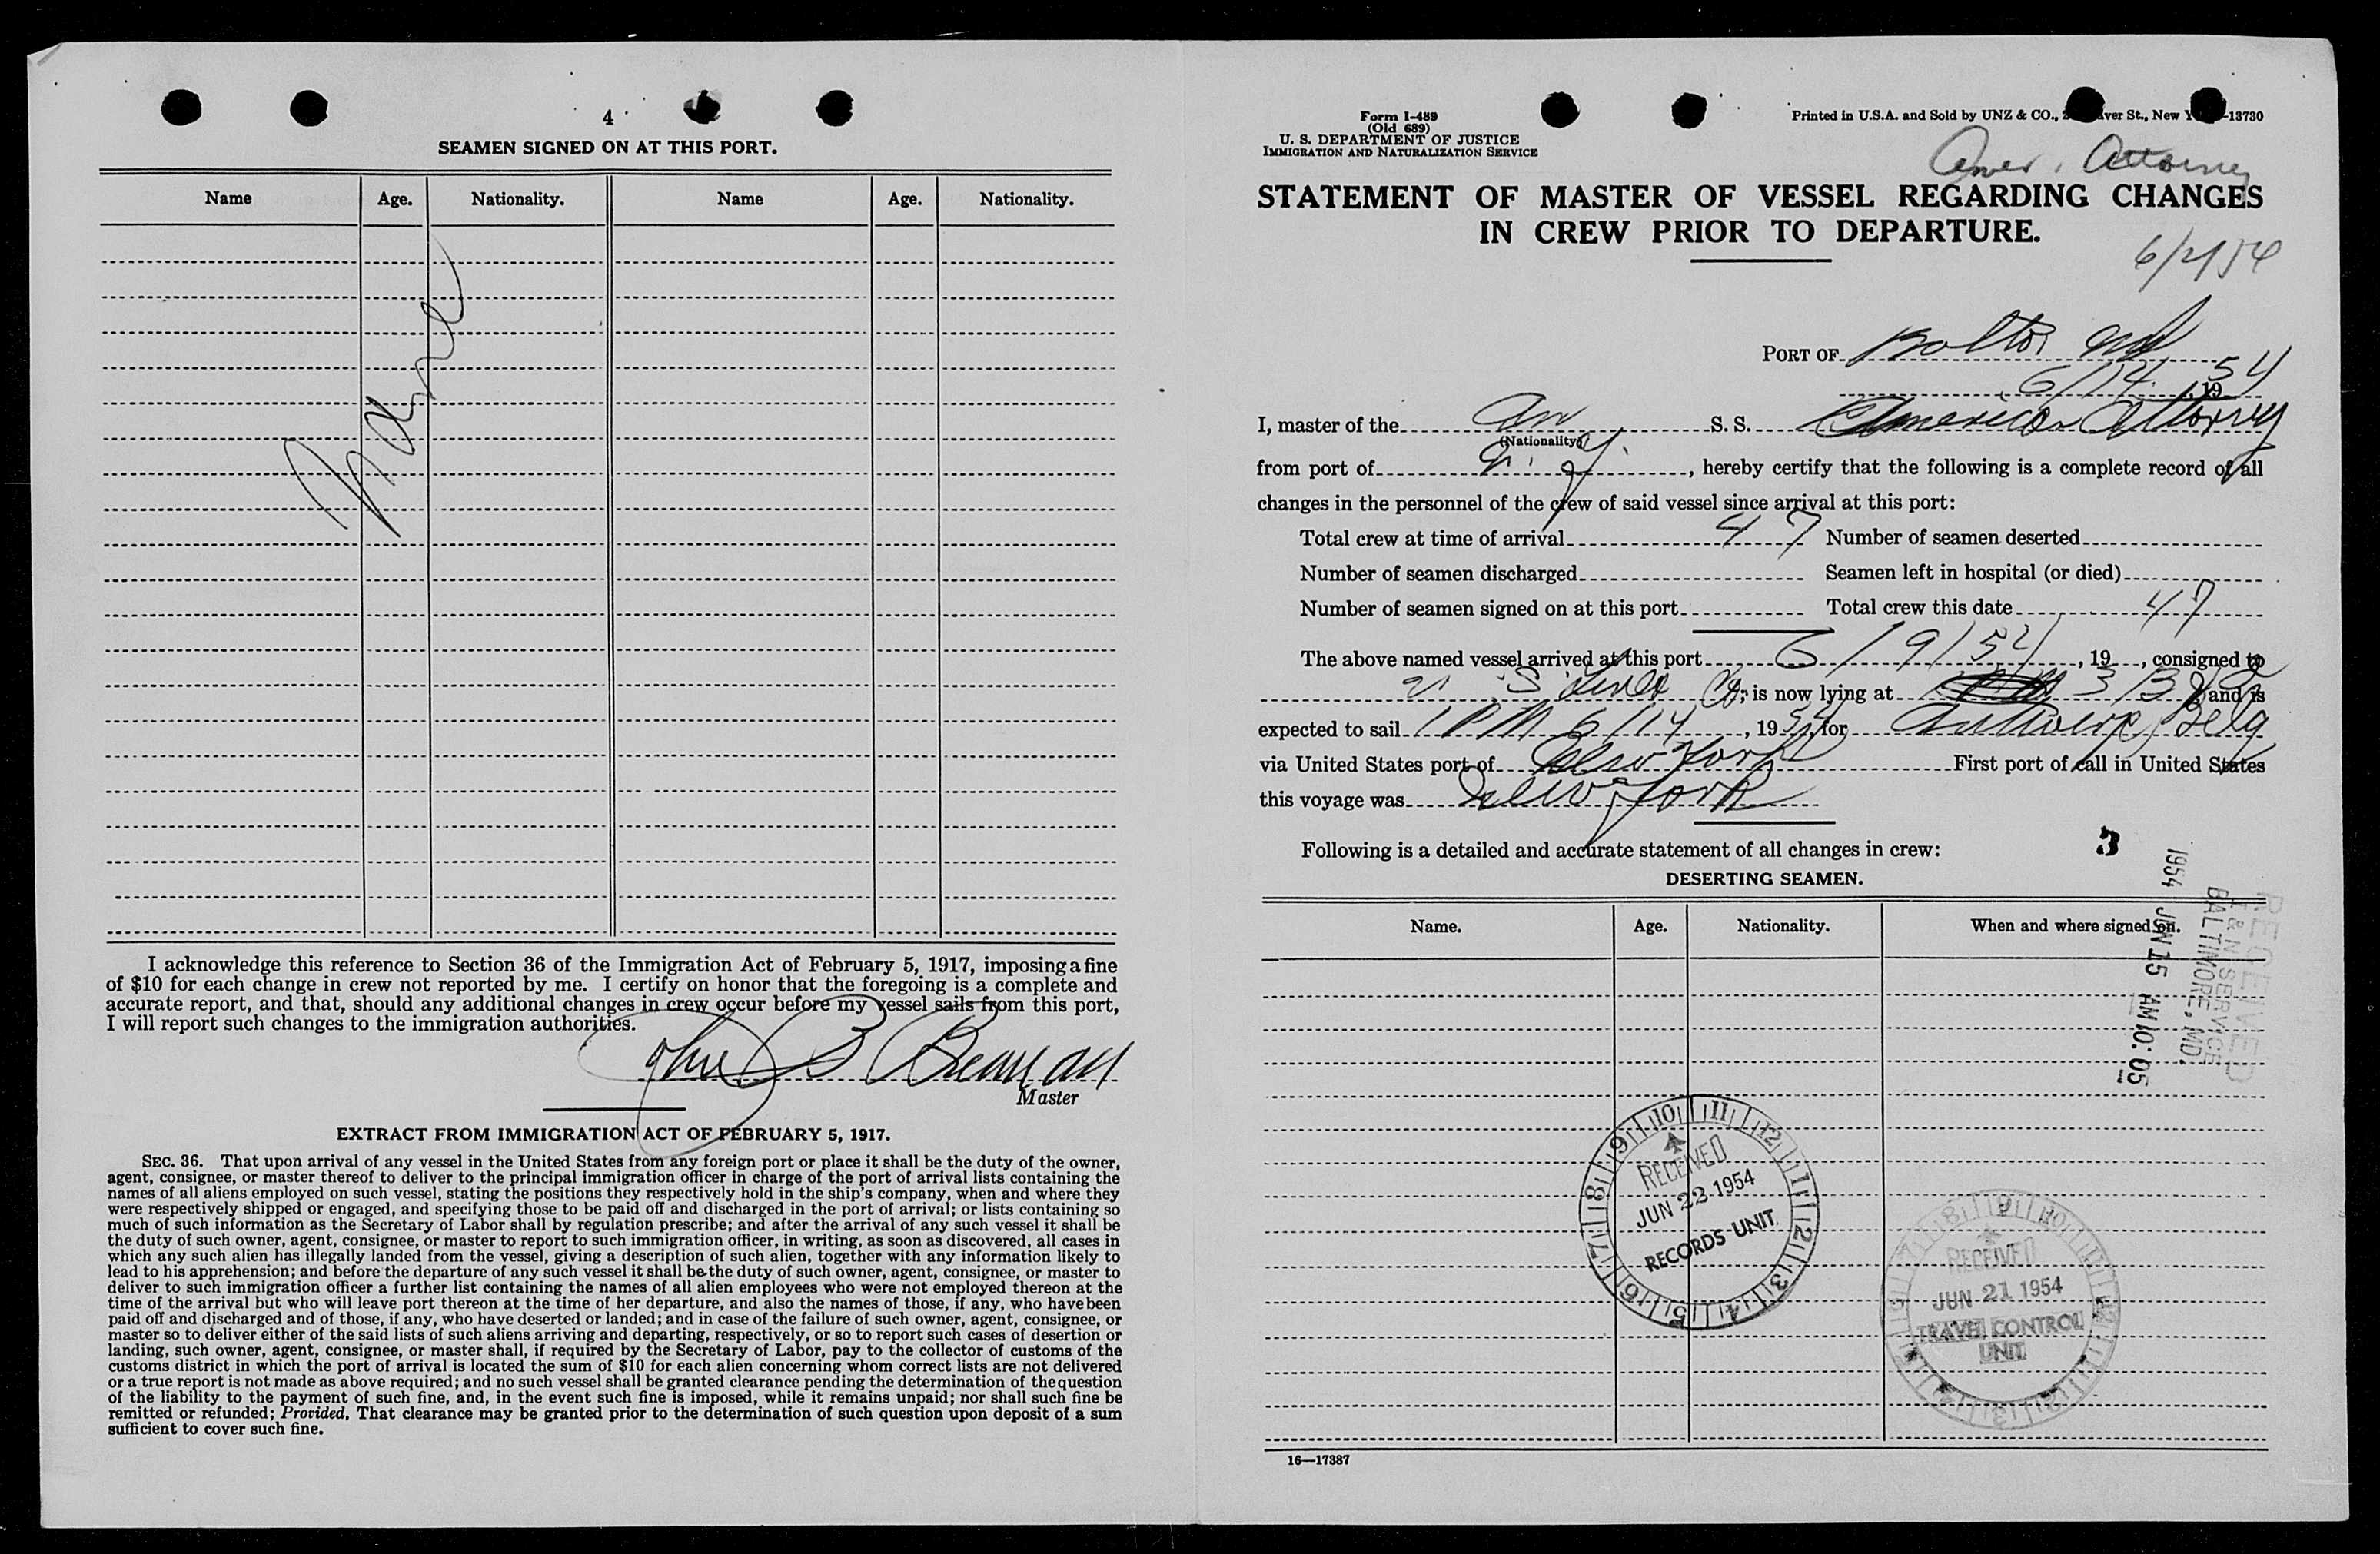 4
SEAMEN SIGNED ON AT THIS PORT.
Name Age. Nationality. Name Age. Nationality.
None
I acknowledge this reference to Section 36 of the Immigration Act of February 5, 1917, imposing a fine
of $10 for each change in crew not reported by me. I certify on honor that the foregoing is a complete and
accurate report, and that, should any additional changes in crew occur before my vessel sails from this port,
I will report such changes to the immigration authorities.
John B
Master
EXTRACT FROM IMMIGRATION ACT OF FEBRUARY 5, 1917.
SEC. 36. That upon arrival of any vessel in the United States from any foreign port or place it shall be the duty of the owner,
agent, consignee, or master thereof to deliver to the principal immigration officer in charge of the port of arrival lists containing the
names of all aliens employed on such vessel, stating the positions they respectively hold in the ship's company, when and where they
were respectively shipped or engaged, and specifying those to be paid off and discharged in the port of arrival; or lists containing so
much of such information as the Secretary of Labor shall by regulation prescribe; and after the arrival of any such vessel it shall be
the duty of such owner, agent, consignee, or master to report to such immigration officer, in writing, as soon as discovered, all cases in
which any such alien has illegally landed from the vessel, giving a description of such alien, together with any information likely to
lead to his apprehension; and before the departure of any such vessel it shall be the duty of such owner, agent, consignee, or master to
deliver to such immigration officer a further list containing the names of all alien employees who were not employed thereon at the
time of the arrival but who will leave port thereon at the time of her departure, and also the names of those, if any, who have been
paid off and discharged and of those, if any, who have deserted or landed; and in case of the failure of such owner, agent, consignee, or
master so to deliver either of the said lists of such aliens arriving and departing, respectively, or so to report such cases of desertion or
landing, such owner, agent, consignee, or master shall, if required by the Secretary of Labor, pay to the collector of customs of the
customs district in which the port of arrival is located the sum of $10 for each alien concerning whom correct lists are not delivered
or a true report is not made as above required; and no such vessel shall be granted clearance pending the determination of the question
of the liability to the payment of such fine, and, in the event such fine is imposed, while it remains unpaid; nor shall such fine be
remitted or refunded; Provided, That clearance may be granted prior to the determination of such question upon deposit of a sum
sufficient to cover such fine.
Form I-489
(Old 689)
U. S. DEPARTMENT OF JUSTICE
IMMIGRATION AND NATURALIZATION SERVICE
Printed in U.S.A. and Sold by UNZ & CO., St., New -13730
Amer. Attorney
STATEMENT OF MASTER OF VESSEL REGARDING CHANGES
IN CREW PRIOR TO DEPARTURE.
PORT OF Balto, Md
6/14, 1954
I, master of the Am S. S. American Attorney
(Nationality)
from port of N. Y., hereby certify that the following is a complete record of all
changes in the personnel of the crew of said vessel since arrival at this port:
Total crew at time of arrival 47 Number of seamen deserted
Number of seamen discharged Seamen left in hospital (or died)
Number of seamen signed on at this port Total crew this date 47
The above named vessel arrived at this port 6/9/54, 19, consigned to
U S Lines Co, is now lying at and is
expected to sail 1 PM 6/14, 1954, for Antwerp, Belg
via United States port of New York First port of call in United States
this voyage was New York
Following is a detailed and accurate statement of all changes in crew:
3
DESERTING SEAMEN.
Name. Age. Nationality. When and where signed on.
RECEIVED
I & N SERVICE
BALTIMORE, MD.
1954 JUN 15 AM 10:05
10 11 12 1 2 3 4 5 6 7 8 9
RECEIVED
JUN 22 1954
RECORDS UNIT
RECEIVED
JUN 21 1954
TRAVEL CONTROL
UNIT
16—17387